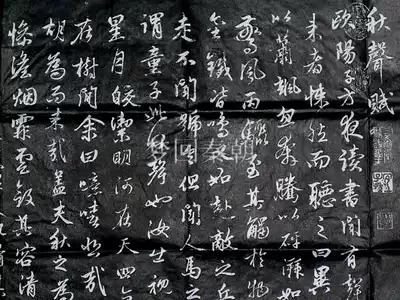 秋聲賦
歐陽子方夜讀書聞有聲
來者悚然而聽之曰異
以蕭颯忽奔騰以砰湃如
驚風雨驟至其觸於物
金鐵皆鳴又如赴敵之兵
走不聞號令但聞人馬之
謂童子此何聲也汝出視
星月皎潔明河在天四
在樹間余曰噫嘻悲哉
胡為而來哉蓋夫秋之為
慘澹烟霏雲斂其容清